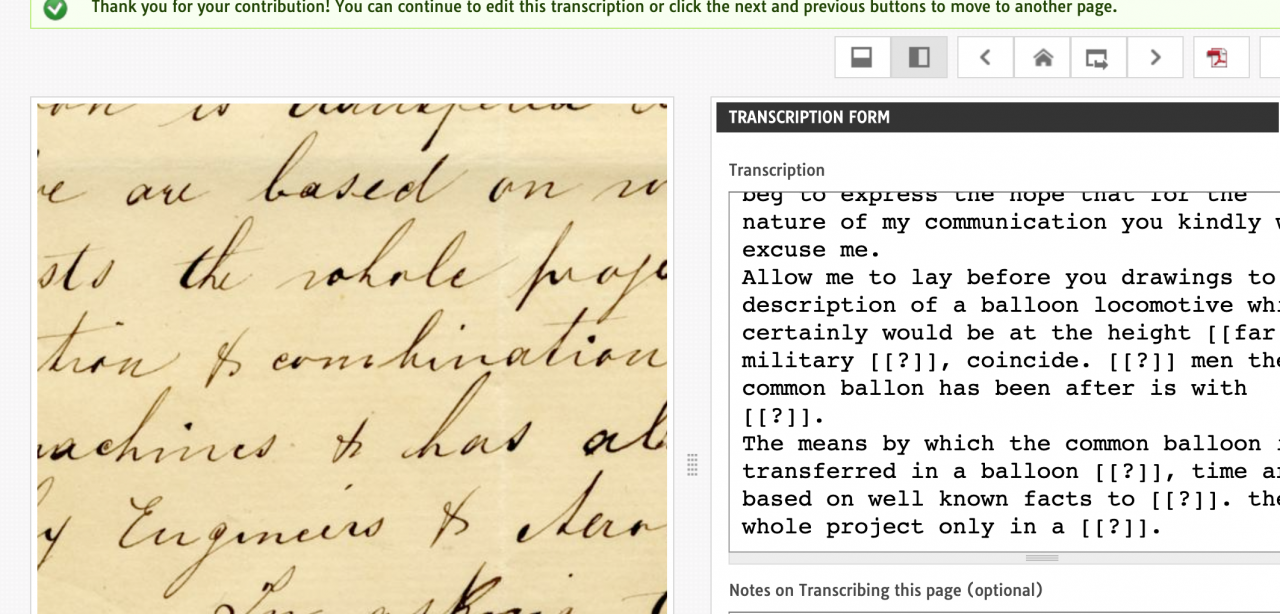 Thank you for your contribution! You can continue to edit this transcription or click the next and previous buttons to move to another page.
on is transferred
are based on
sts the whole proje
tion & combination
achines & has al
y Engineers & Aero
In asking
TRANSCRIPTION FORM
Transcription
beg to express the hope that for the
nature of my communication you kindly w
excuse me.
Allow me to lay before you drawings to
description of a balloon locomotive whi
certainly would be at the height [[far
military [[?]], coincide. [[?]] men the
common ballon has been after is with
[[?]].
The means by which the common balloon i
transferred in a balloon [[?]], time an
based on well known facts to [[?]]. the
whole project only in a [[?]].
Notes on Transcribing this page (optional)